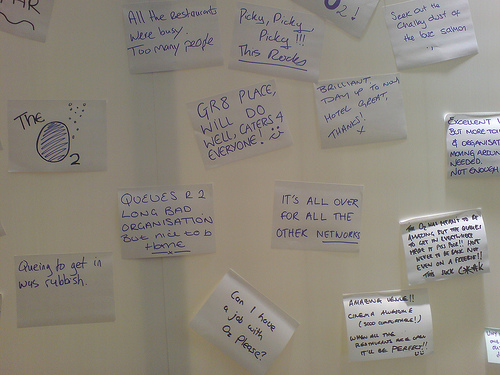 All the Restaurants
were busy.
Too many people
Picky, Picky,
Picky !!!
This Rocks
2!
Seek out the
Chalky dust of
the love salmon
GR8 PLACE,
WILL DO
WELL, CATERS 4
EVERYONE!
BRILLIANT
DAY UP TO NOW
HOTEL GREAT,
THANKS!
X
The
O2
EXCELLENT
BUT MORE
& ORGANISAT
MOVING AROUN
NEEDED.
NOT ENOUGH
QUEUES R 2
LONG BAD
ORGANISATION
But nice to b
Home
IT'S ALL OVER
FOR ALL THE
OTHER NETWORKS
AMAZING BUT THE QUEUES
TO GET IN EVERYWHERE
EVEN ON A FREEBIE!!
Queing to get in
was rubbish.
Can I have
a job with
O2 Please?
AMAZING VENUE!!
CINEMA AWESOME
(SOOO COMFORTABLE!)
WHEN ALL THE
RESTAURANTS ARE OPEN
IT'LL BE PERFECT!!